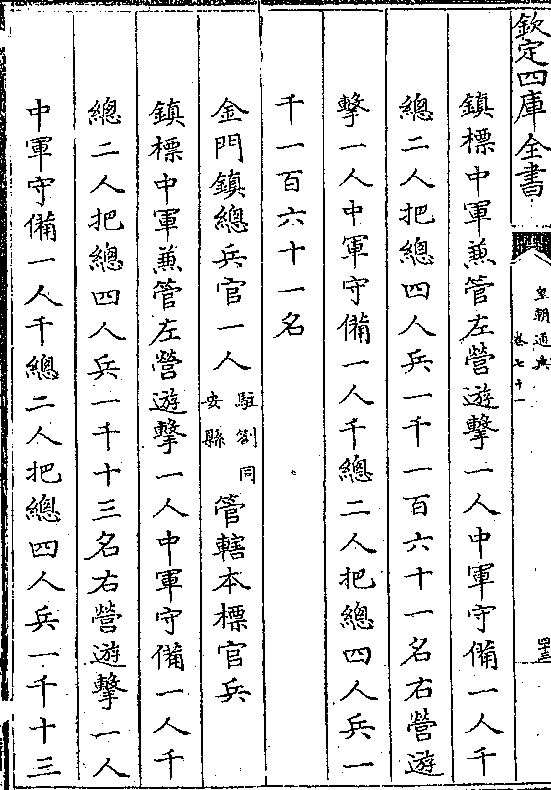 欽定四庫全書
皇朝通典
卷七十一
四十三
鎮標中軍兼管左營遊擊一人中軍守備一人千
總二人把總四人兵一千一百六十一名右營遊
擊一人中軍守備一人千總二人把總四人兵一
千一百六十一名
金門鎮總兵官一人駐劄同安縣管轄本標官兵
鎮標中軍兼管左營遊擊一人中軍守備一人千
總二人把總四人兵一千十三名右營遊擊一人
中軍守備一人千總二人把總四人兵一千十三